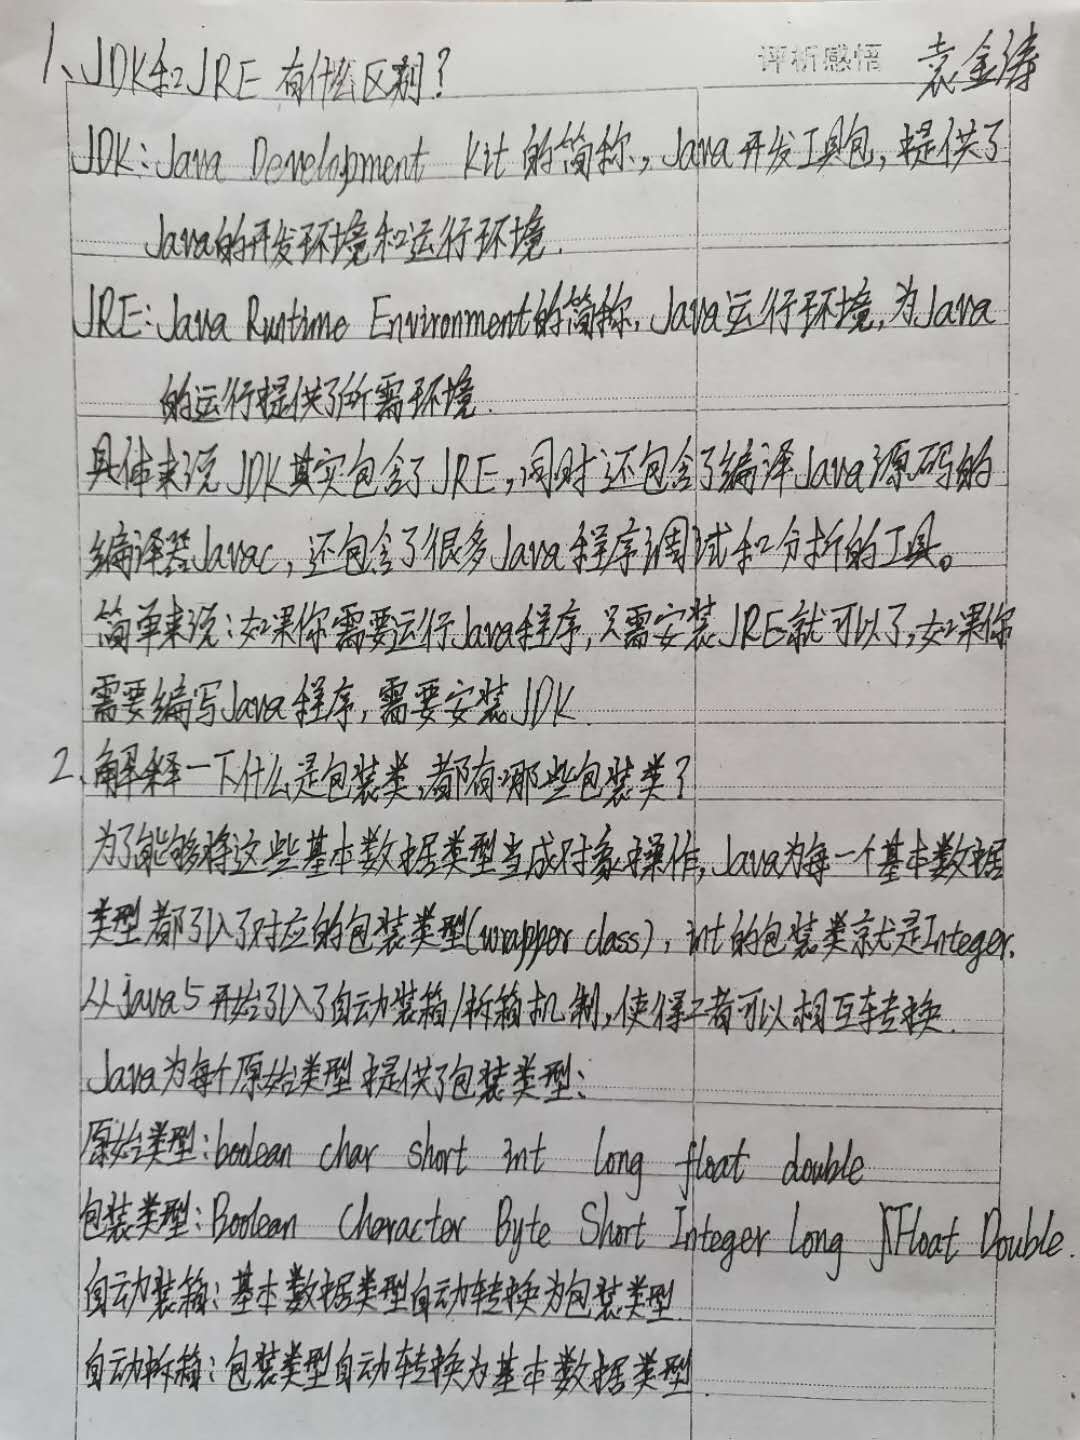 评析感悟 袁金涛
1、JDK和JRE有什么区别?
JDK:Java Development Kit的简称,Java开发工具包,提供了
Java的开发环境和运行环境.
JRE:Java Runtime Environment的简称,Java运行环境,为Java
的运行提供了所需环境.
具体来说JDK其实包含了JRE,同时还包含了编译Java源码的
编译器Javac,还包含了很多Java程序调试和分析的工具。
简单来说:如果你需要运行Java程序,只需安装JRE就可以了,如果你
需要编写Java程序,需要安装JDK.
2、解释一下什么是包装类,都有哪些包装类?
为了能够将这些基本数据类型当成对象操作,Java为每一个基本数据
类型都引入了对应的包装类型(wrapper class),int的包装类就是Integer.
从java5开始引入了自动装箱/拆箱机制,使得二者可以相互转换.
Java为每个原始类型提供了包装类型:
原始类型:boolean char short int long float double
包装类型:Boolean Character Byte Short Integer Long Float Double.
自动装箱:基本数据类型自动转换为包装类型.
自动拆箱:包装类型自动转换为基本数据类型.